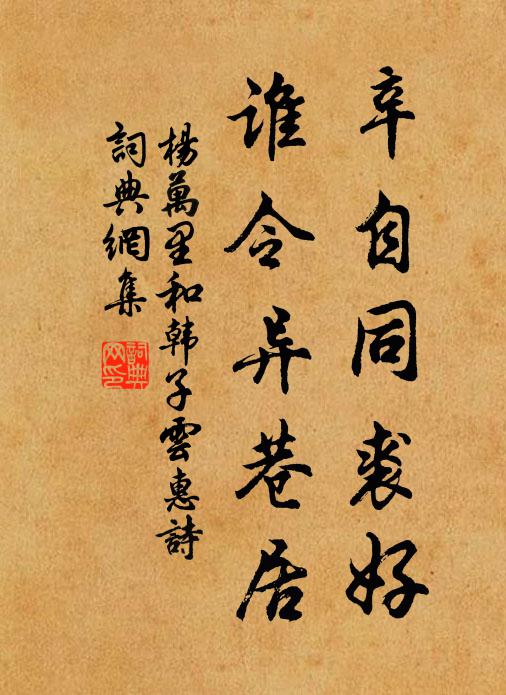 幸自同裘好
谁令异巷居
楊萬里和韩子雲惠詩
詞典網集
詞典网印